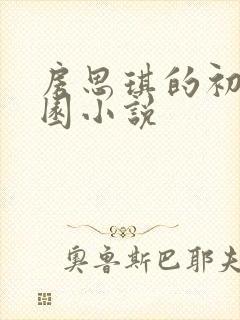 房思琪的初
园小说
奥鲁斯巴耶夫